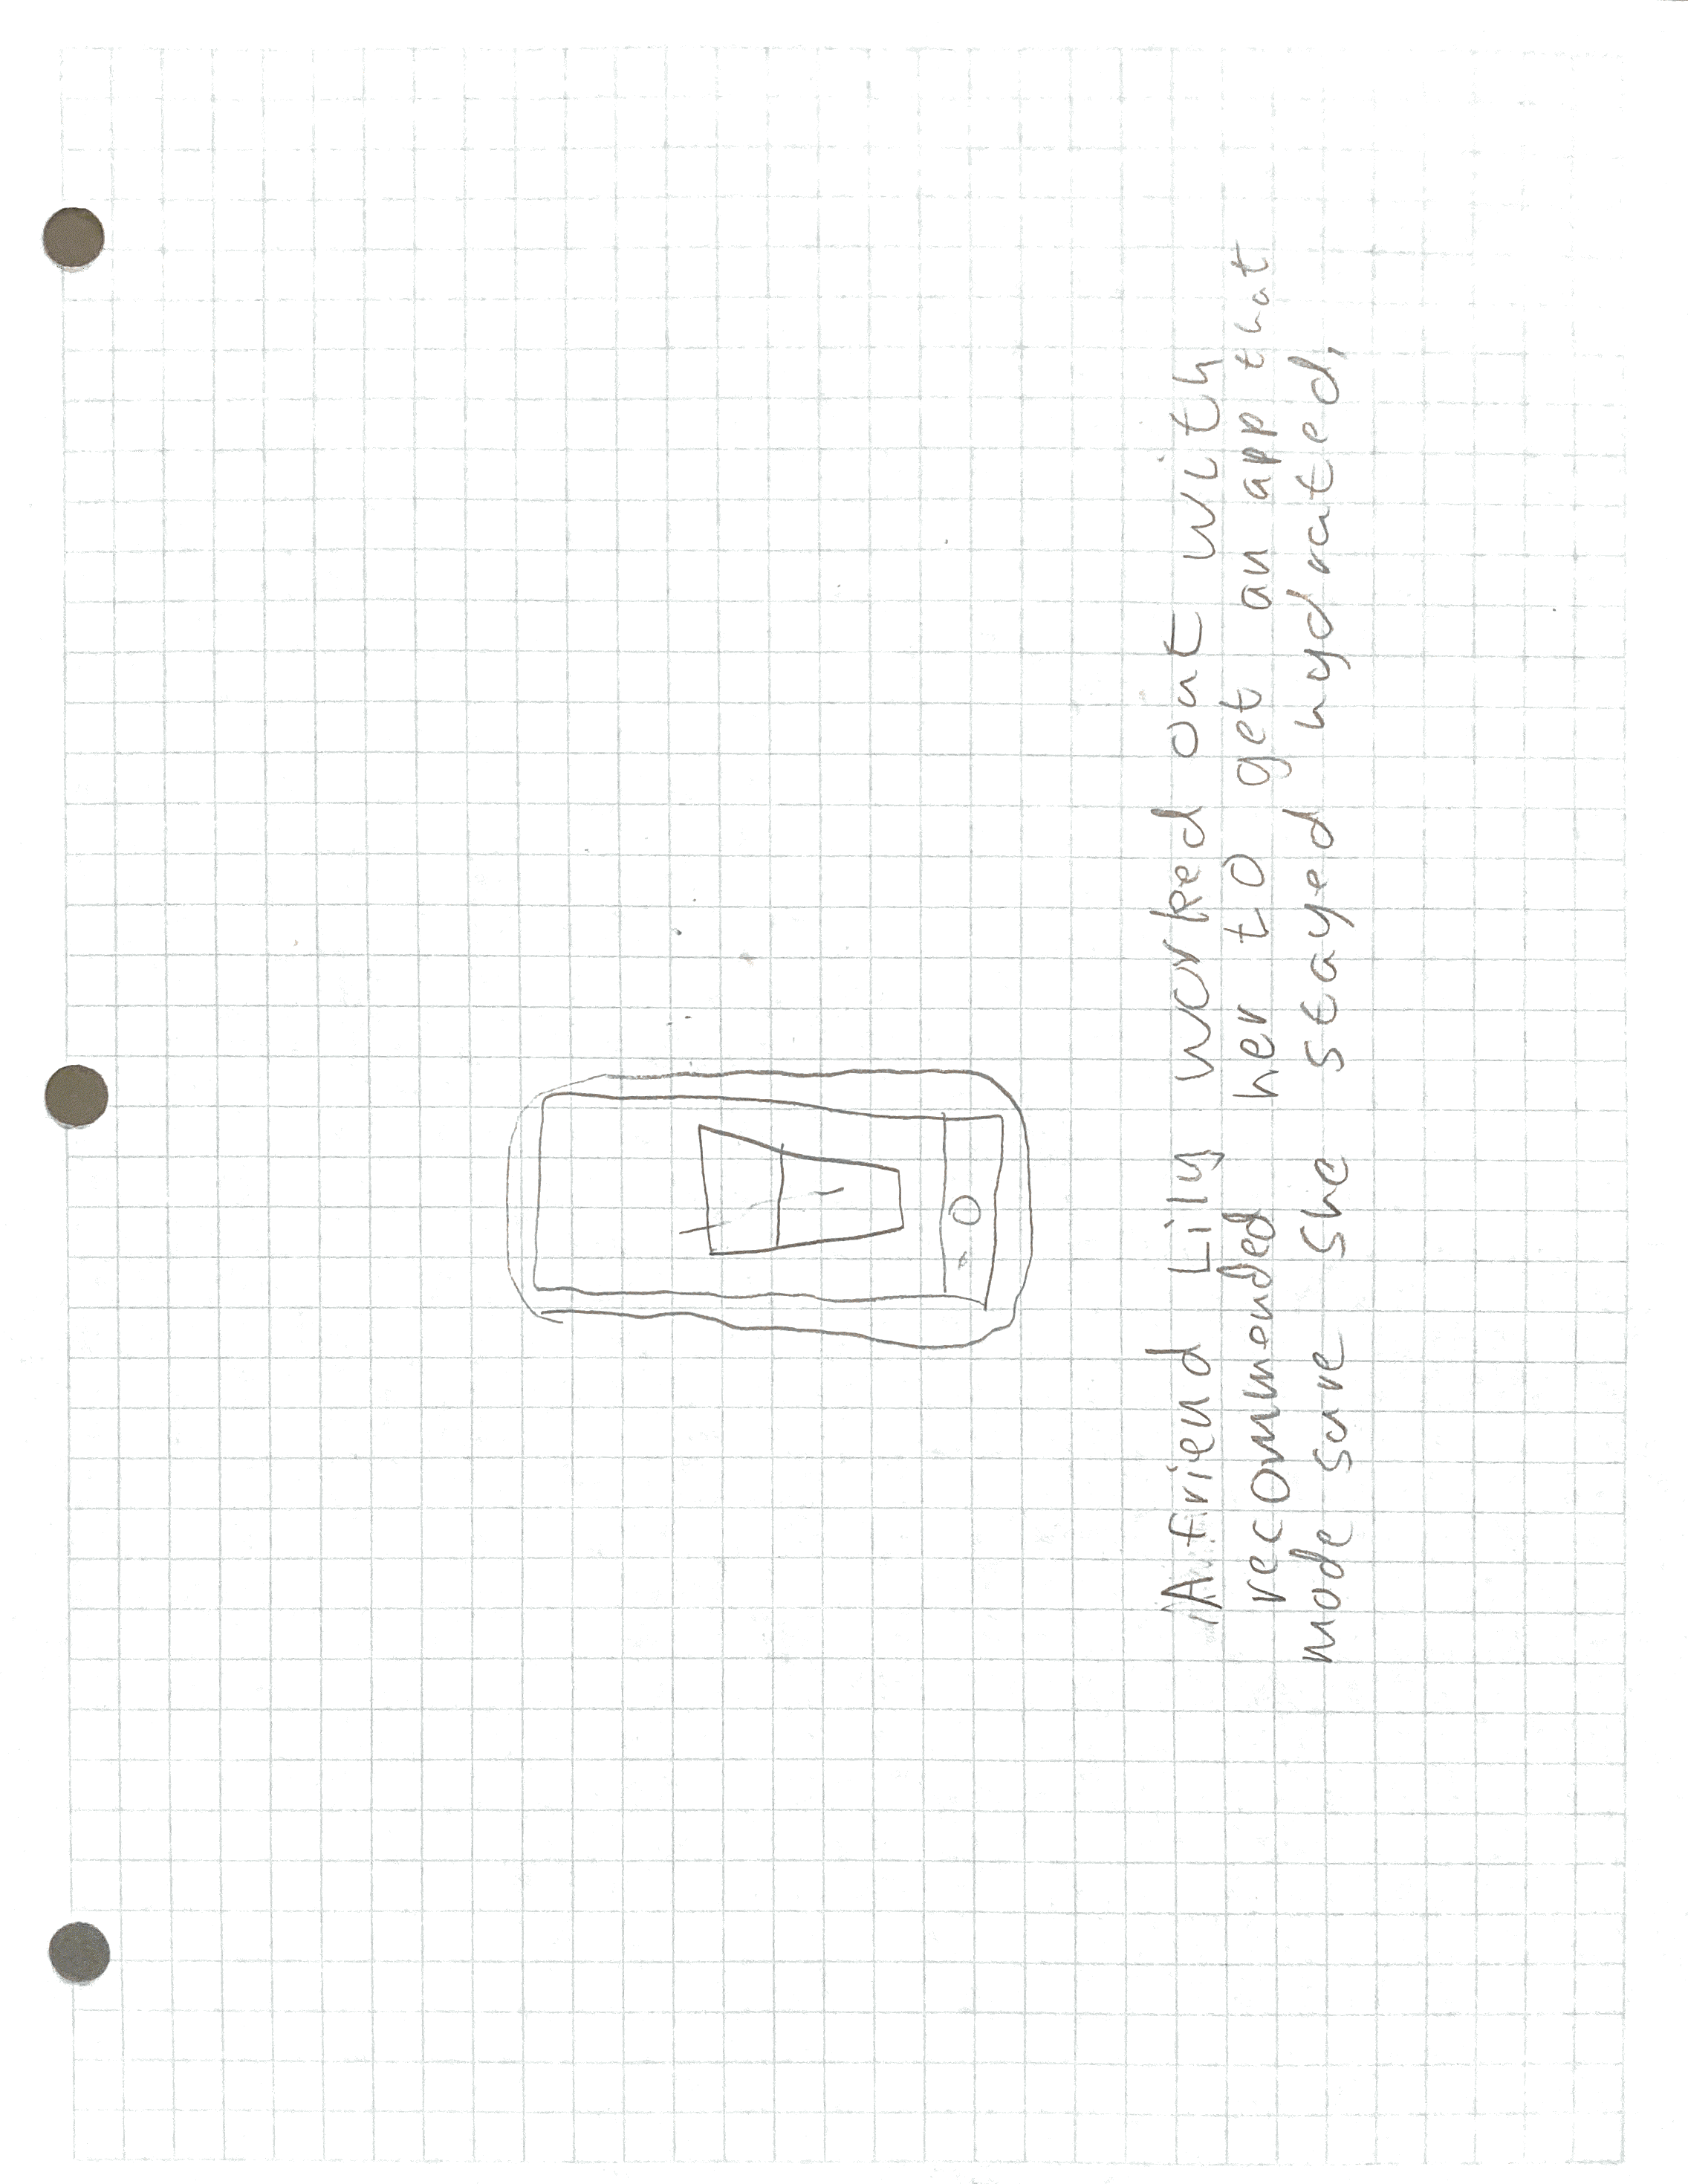 A friend Lily worked out with
recommended her to get an app that
made sure she stayed hydrated,